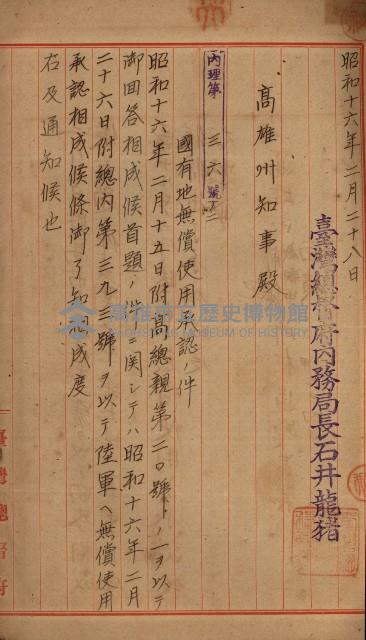 昭和十六年二月二十八日
臺灣總督府內務局長石井龍猪
高雄州知事殿
內理第三六號ノ二
國有地無償使用承認ノ件
昭和十六年二月十五日附高總親第二〇號ノ一ヲ以テ
御回答相成候首題ノ件ニ関シテハ昭和十六年二月
二十六日附總內第三九三號ヲ以テ陸軍ヘ無償使用
承認相成候條御了知相成度
右及通知候也
臺灣總督府
高雄市立歷史博物館
KAOHSIUNG MUSEUM OF HISTORY